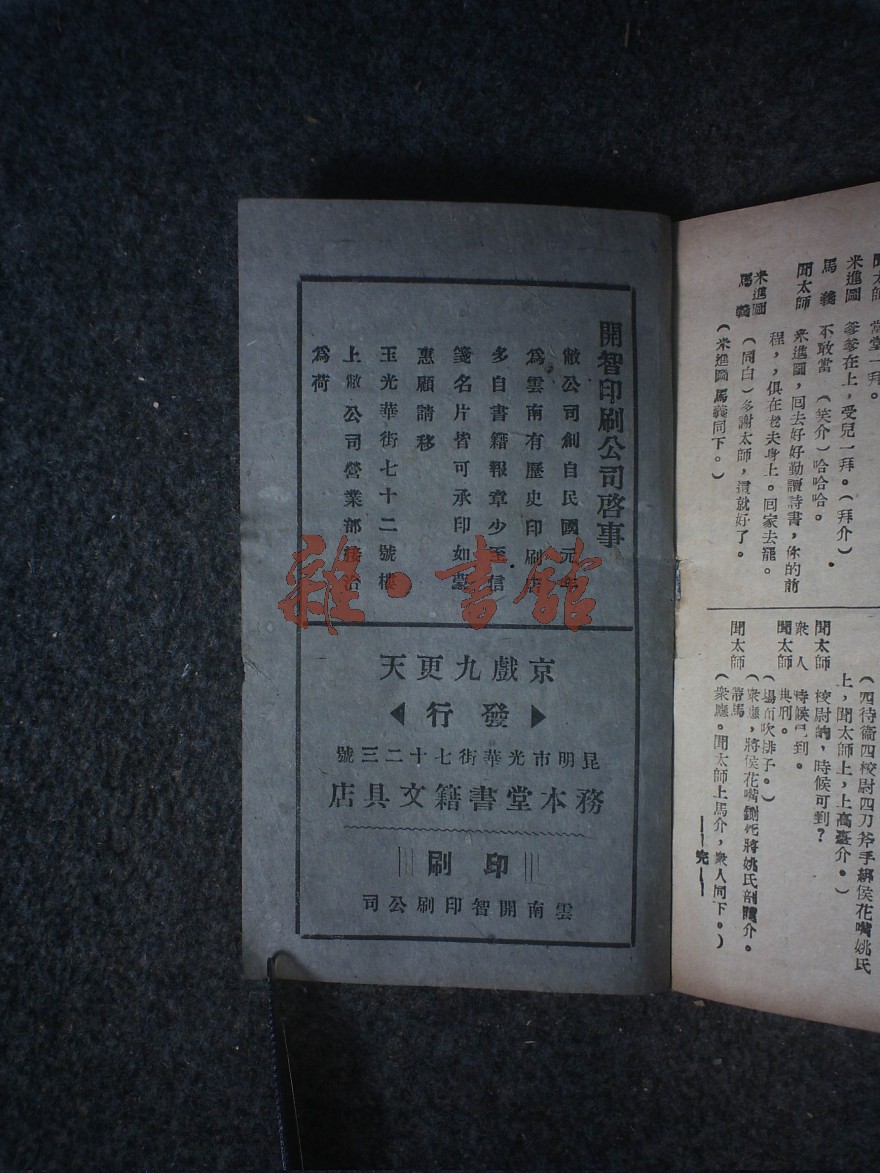 聞太師
當堂一拜。
米進圖
爹爹在上，受兒一拜。（拜介）
馬義
不敢當（笑介）哈哈哈。
聞太師
米進圖，回去好好勤讀詩書，你的前
程，俱在老夫身上。回家去罷。
米進圖
馬義
（同白）多謝太師，這就好了。
（米進圖馬義同下。）
（四待衛四校尉四刀斧手綁侯花嘴姚氏
上，聞太師上，上高臺介。）
聞太師
校尉的，時候可到？
衆人
時候已到。
聞太師
典刑。
（場面吹排子。）
（衆應，將侯花嘴鍘死將姚氏剖腹介。
聞太師
帶馬
（衆應。聞太師上馬介，衆人同下。）
——完——
開智印刷公司啓事
敝公司創自民國元年
為雲南有歷史印刷店
多自書籍報章少至信
箋名片皆可承印如蒙
惠顧請移
玉光華街七十二號樓
上敝公司營業部接洽
為荷
京戲九更天
發行
昆明市光華街七十二三號
務本堂書籍文具店
印刷
雲南開智印刷公司
雜·書館